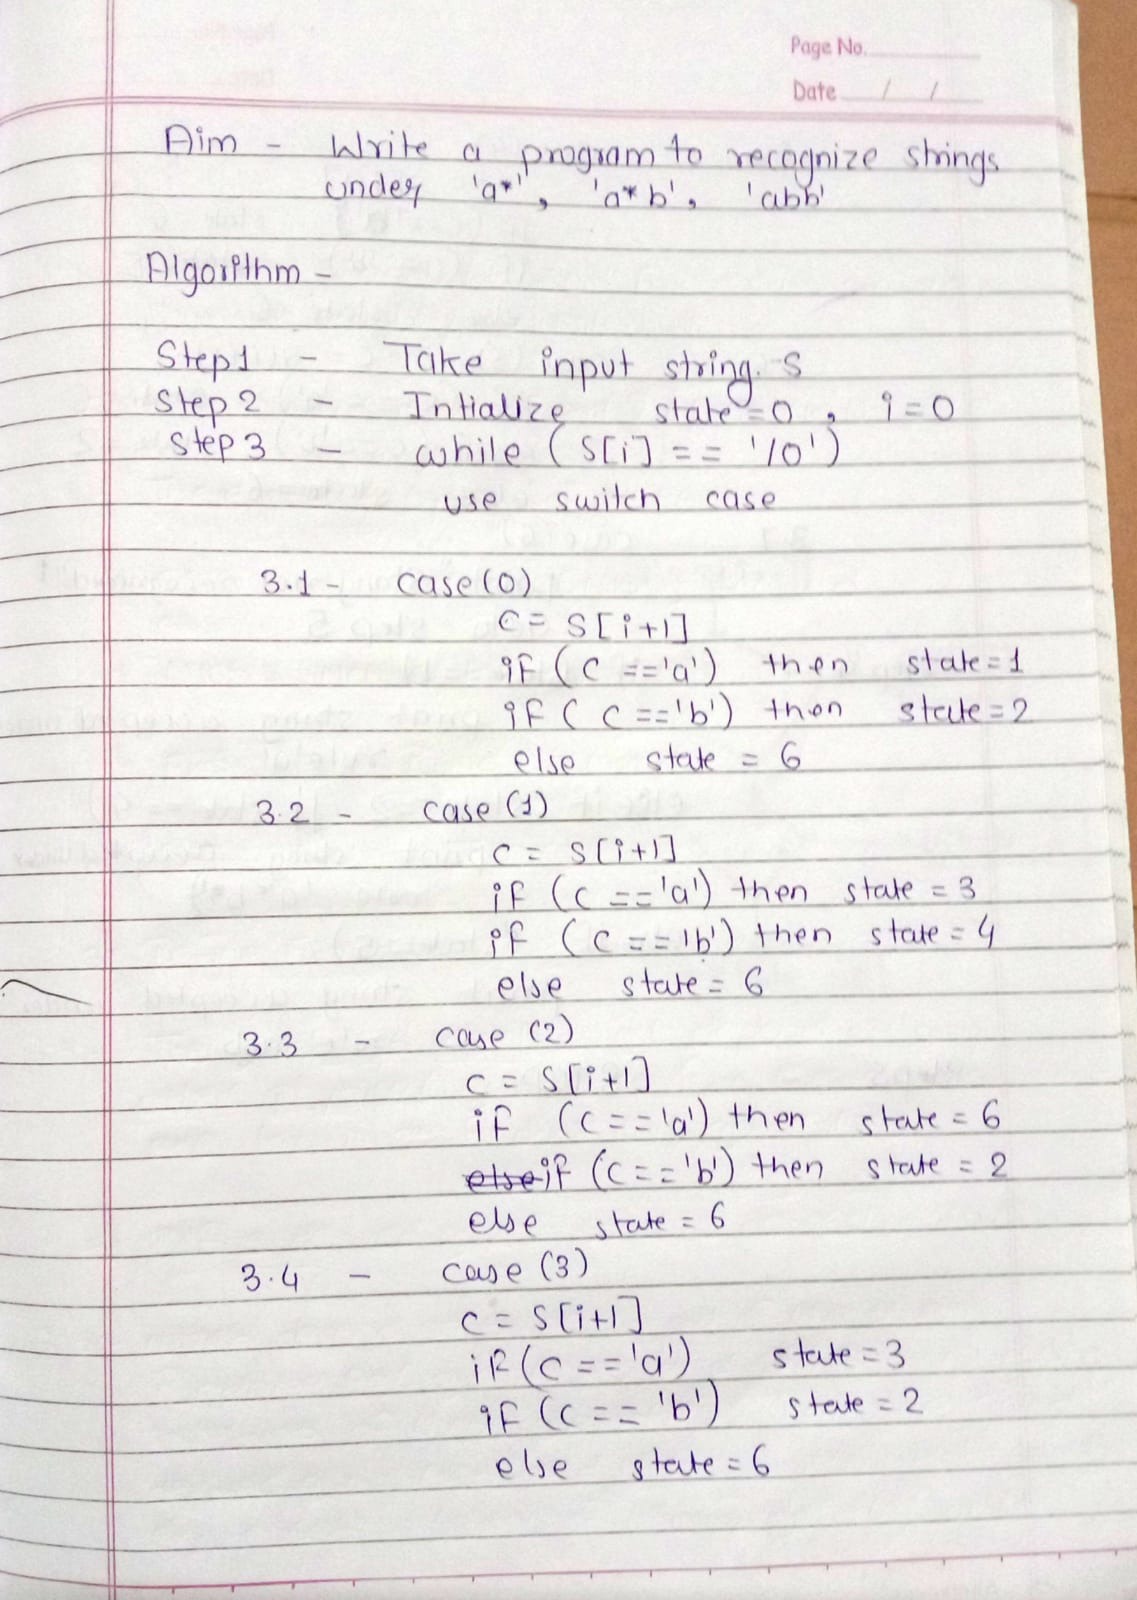 Page No.
Date / /
Aim - Write a program to recognize strings
under 'a*', 'a*b', 'abb'
Algorithm -
Step1 - Take input string. S
Step 2 - Intialize state=0, i=0
Step 3 - while (S[i] == '/0')
use switch case
3.1 - case(0)
c= S[i+1]
if (c =='a') then state=1
if ( c =='b') then state=2
else state = 6
3.2 - case (1)
c = s[i+1]
if (c =='a') then state = 3
if (c =='b') then state = 4
else state = 6
3.3 - case (2)
c = s[i+1]
if (c=='a') then state = 6
if (c=='b') then state = 2
else state = 6
3.4 - case (3)
c = s[i+1]
if(c=='a') state=3
if (c== 'b') state = 2
else state = 6